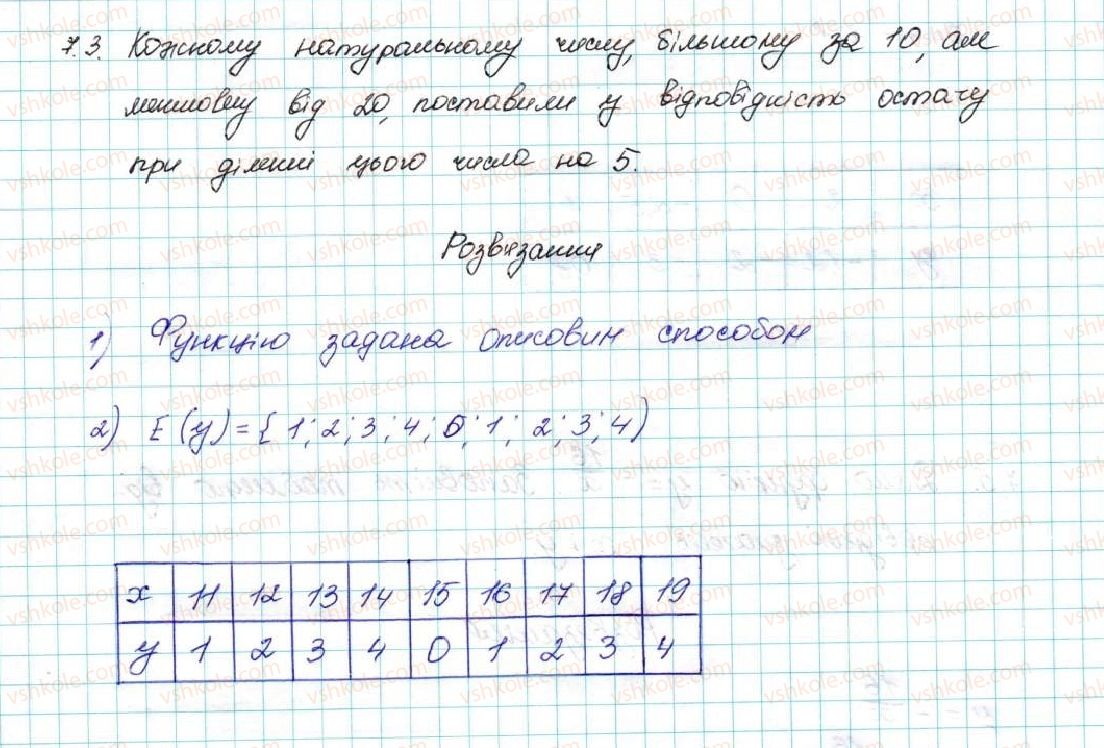 7.3. Кожному натуральному числу, більшому за 10, але
меншому від 20, поставили у відповідність остачу
при діленні цього числа на 5.
Розв'язання
1) Функцію задана описовим способом
2) E (y) = { 1; 2; 3; 4; 0; 1; 2; 3; 4 )
x 11 12 13 14 15 16 17 18 19
y 1 2 3 4 0 1 2 3 4
vshkole.com